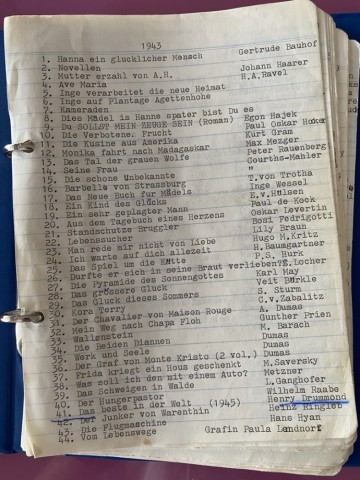 1943
1. Hanna ein glucklicher Mensch Gertrude Bauhof
2. Novellen
3. Mutter erzahl von A.H. Johann Haarer
4. Ave Maria H.A.Ravel
5. Inge verarbeitet die neue Heimat
6. Inge auf Plantage Agettenhohe
7. Kameraden
8. Dies Mädel is Hanne spater bist Du es
9. Du SOLLST MEIN ZEUGE SEIN (Roman) Egon Hajek
10. Die Verbotene. Frucht Paul Oskar
11. Die Kusine aus Amerika Kurt Gram
12. Monika fahrt nach Madagaskar Max Mezger
13. Das Tal der grauen Wolfe Peter Rauenberg
14. Seine Frau Gourths-Mahler
15. Die schone Unbekannte "
16. Barbele von Strassburg T.von Trotha
17. Das Neue Buch fur Mädels Inge Wessel
18. Ein Kind des Glücks E.v.Hülsen
19. Ein sehr geplagter Mann Paul de Kock
20. Aus dem Tagebuch eines Herzens Oskar Levertin
21. Standschutze Bruggler Bosi Fedrigotti
22. Lebenssucher Lily Braun
23. Man rede mir nicht von Liebe Hugo M.Kritz
24. Ich warte auf dich allezeit H.Baumgartner
25. Das Spiel um die Kätte P.S. Hurk
26. Durfte er sich in seine Braut verlieben? E.Locher
27. Die Pyramide des Sonnengottes Karl May
28. Das grossere Gluck Veit Bürkle
29. Das Gluck dieses Sommers S. Sturm
30. Kora Terry C.v.Zabalitz
31. Der Chavalier von Maison Rouge A. Dumas
32. Mein Weg nach Chapa Floh Gunther Prien
33. Wallenstein M. Barach
34. Die Beiden Diannen Dumas
35. Werk und Seele Dumas
36. Der Graf von Monte Kristo (2 vol.) Dumas
37. Frida kriegt ein Haus geschenkt M.Saversky
38. Was soll ich den mit einem Auto? Metzner
39. Das Schweigen in Walde L.Ganghofer
40. Der Hungerpastor Wilhelm Raabe
41. Das beste in der Welt (1945) Henry Drummond
42. Der Junker von Warenthin Heinz Ringlet
43. Die Flugmaschine Hans Hyan
44. Vom Lebenswege Grafin Paula